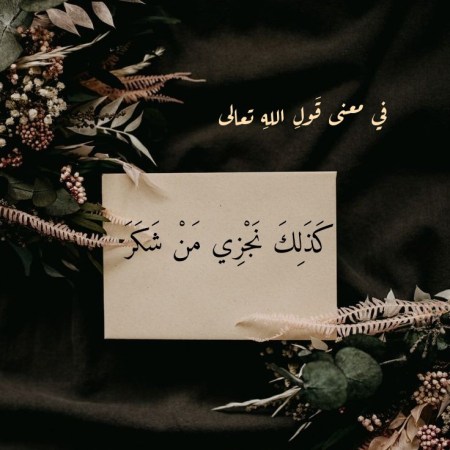 في معنى قَولِ اللهِ تعالى
كَذَلِكَ نَجْزِي مَنْ شَكَرَ